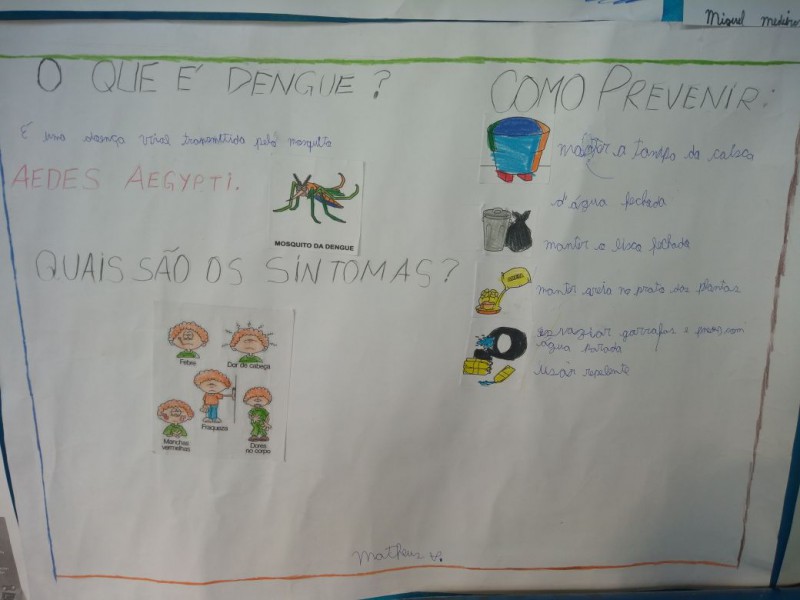 Miguel medeiros
O QUE É DENGUE?
É uma doença viral transmitida pelo mosquito
AEDES AEGYPTI.
MOSQUITO DA DENGUE
QUAIS SÃO OS SINTOMAS?
Febre
Dor de cabeça
Fraqueza
Manchas vermelhas
Dores no corpo
COMO PREVENIR:
manter a tampa da caixa
d'água fechada
manter o lixo fechado
manter areia no prato das plantas
esvaziar garrafas e pneus com
água parada
usar repelente
Matheus